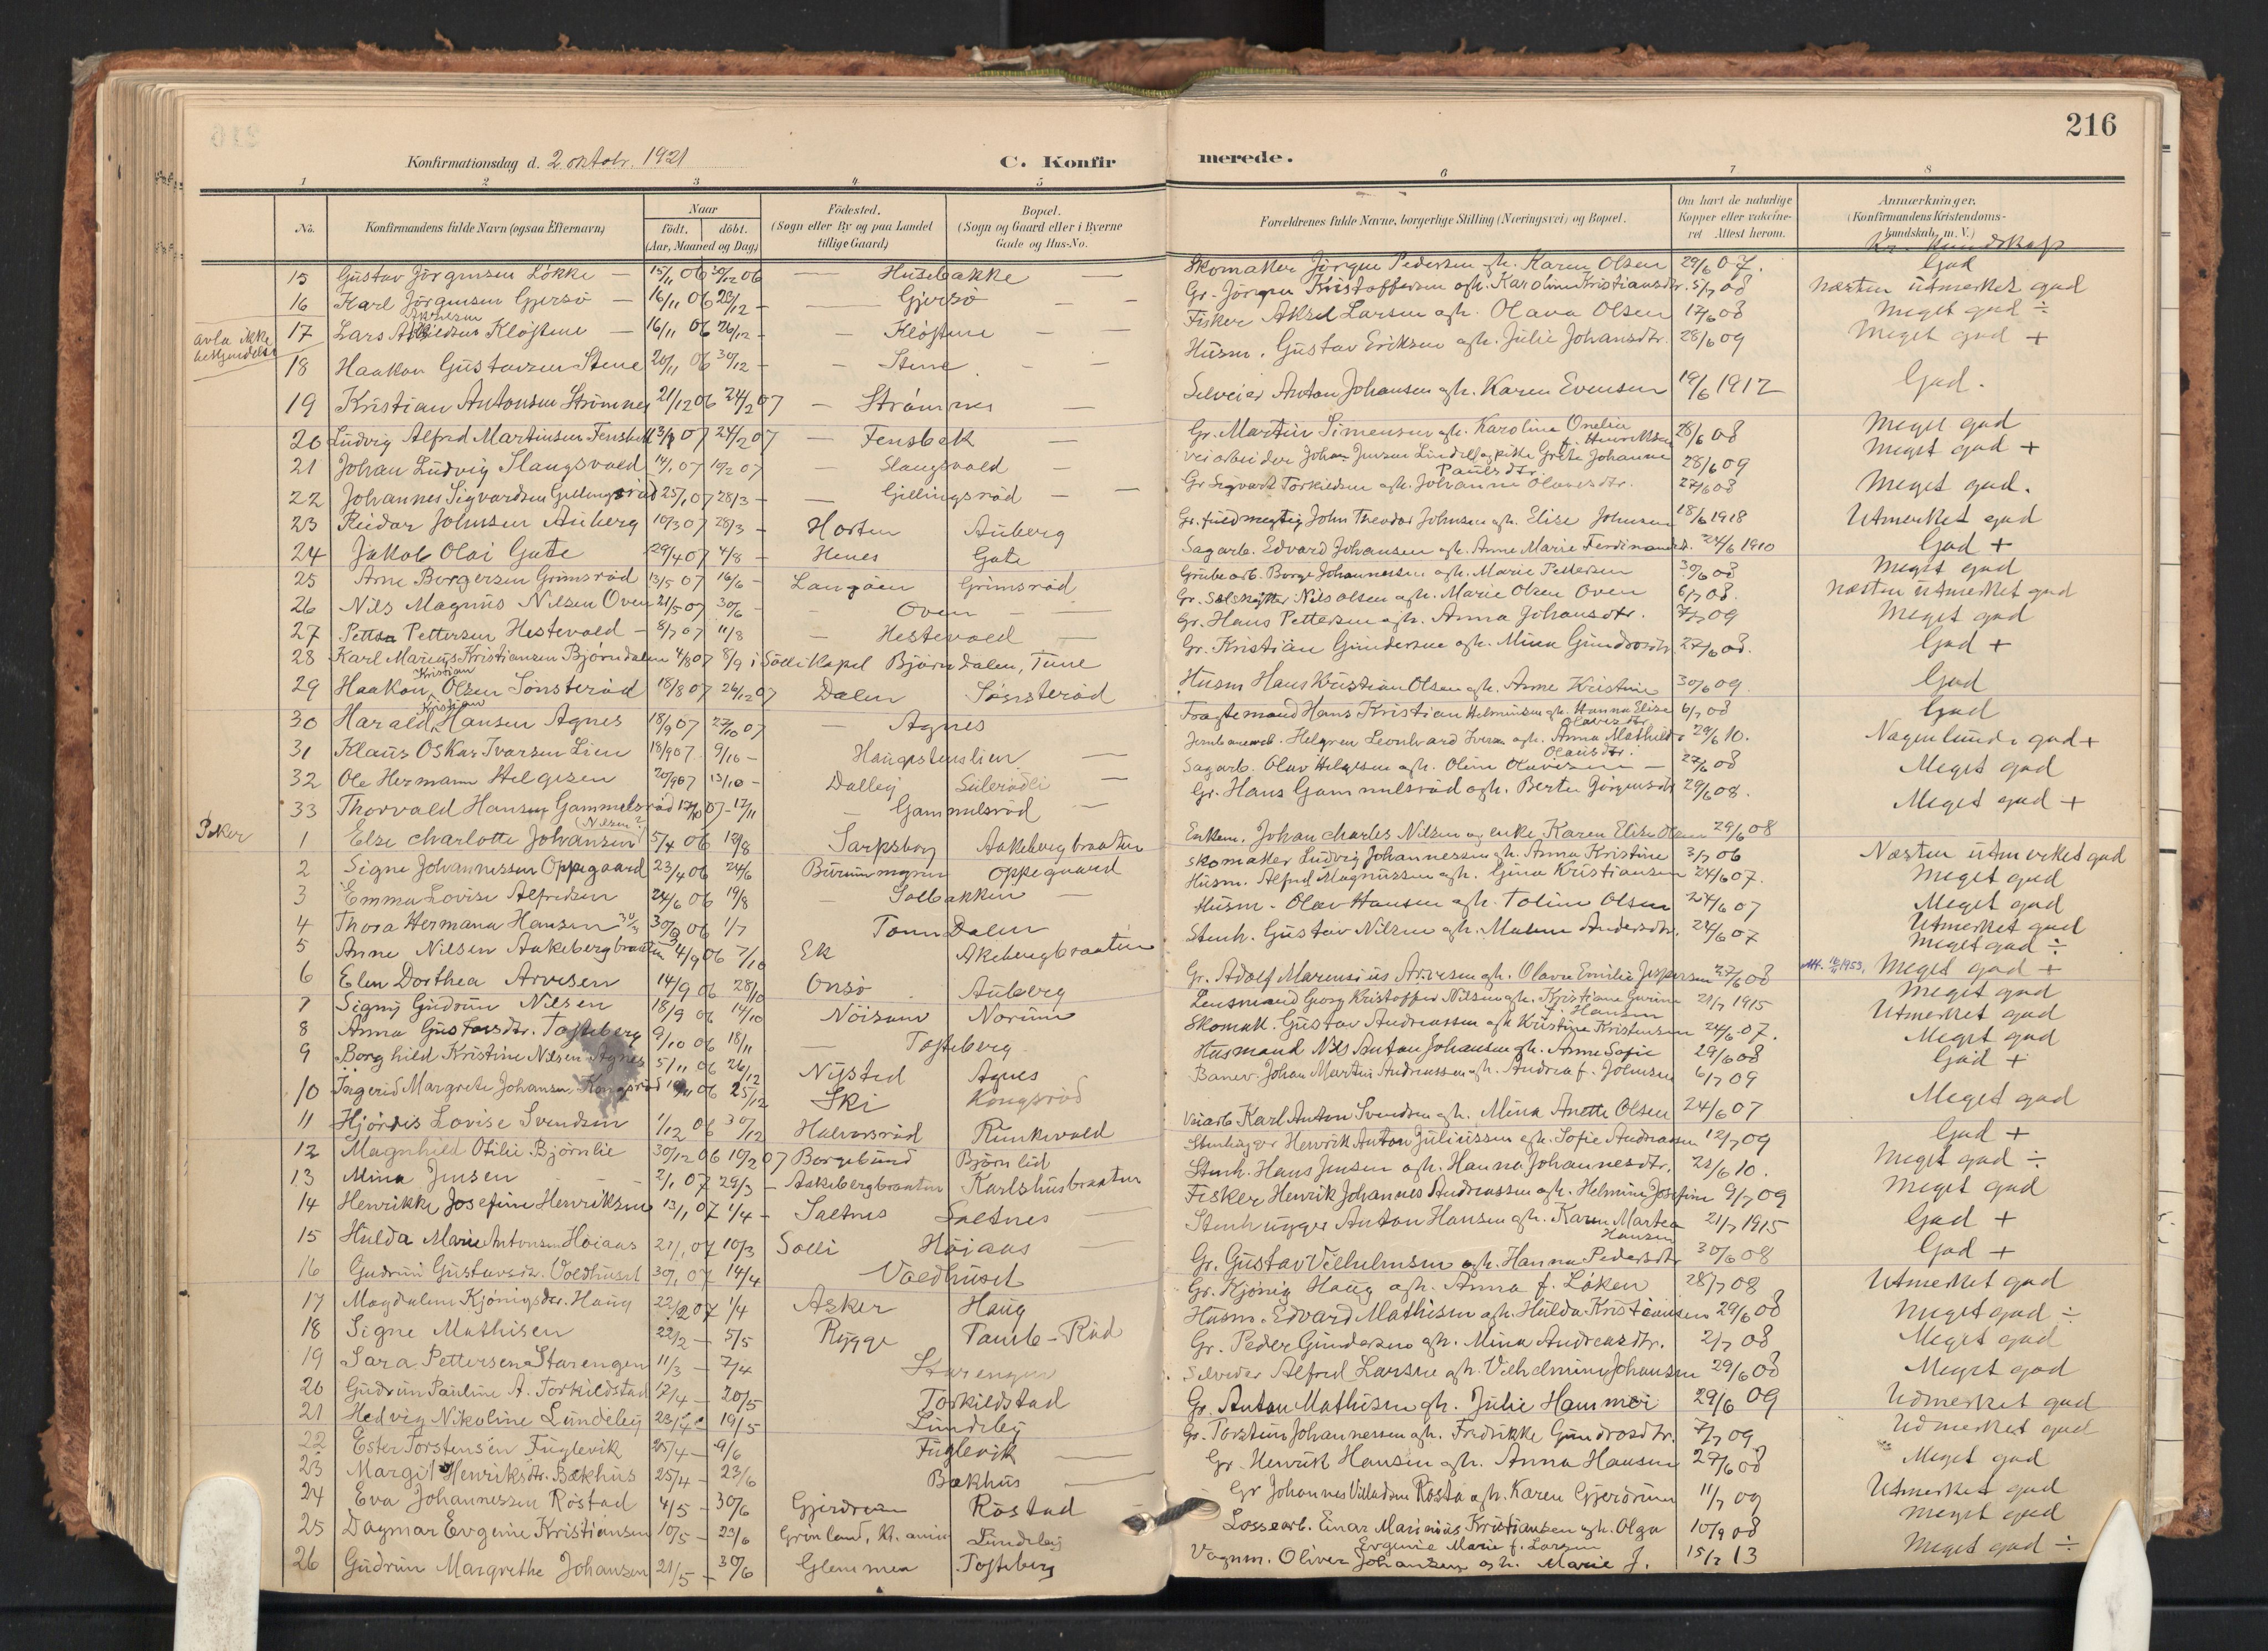 216
Konfirmationsdag d. 2 oktobr. 1921
C. Konfirmerede.
1 2 3 4 5 6 7 8
No. Konfirmandens fulde Navn (ogsaa Efternavn) Naar født. døbt. (Aar, Maaned og Dag) Födested. (Sogn eller By og paa Landet tillige Gaard) Bopæl. (Sogn og Gaard eller i Byerne Gade og Hus-No. Forældrenes fulde Navne, borgerlige Stilling (Næringsvei) og Bopæl. Om havt de naturlige Kopper eller vaksineret Attest herom. Anmærkninger. (Konfirmandens Kristendomskundskab m. V.)
Kr. kundskap
15 Gustav Jörgensen Lökke — 15/11 06 30/12 06 — Husebakke — Skomaker Jörgen Pedersen oh. Karen Olsen 29/6 07. God
16 Karl Jörgensen Gjersö — 16/11 06 26/12 — Gjersö — Gr. Jörgen Kristoffersen oh. Karoline Kristiansdtr. 5/7 08 næsten utmerket god
17 Lars Klöftene — 16/11 06 26/12 — Klöftene — Fisker Aksel Larsen oh. Olava Olsen 17/6 08 Meget god ÷
avla ikke bekjendelse
18 Haakon Gustavsen Stene 20/11 06 30/12 — Stene — Husm. Gustav Eriksen oh. Julie Johansdtr. 28/6 09 Meget god +
19 Kristian Antonsen Strömnes 21/12 06 24/2 07 — Strömnes — Selveier Anton Johansen oh. Karen Evensen 19/6 1912 God.
20 Ludvig Alfred Martinsen Fensbek 13/1 07 24/2 07 — Fensbek — Gr. Martin Simensen oh. Karoline Onelia f. Henriksen 28/6 08 Meget god
21 Johan Ludvig Slangsvold 14/1 07 10/2 07 — Slangsvold — Veiarbeider Johan Jensen Lindell og pike Grete Johanne Paulsdtr. 28/6 09 Meget god +
22 Johannes Sigvardsen Gillingsröd 25/1 07 28/3 — Gillingsröd — Gr. Sigvart Torkildsen oh. Johanne Olavesdtr. 27/6 08 Meget god.
23 Reidar Johnsen Auberg 10/3 07 28/3 — Horten Auberg Gr. fuldmegtig John Theodor Johnsen oh. Elise Johnsen 18/6 1918 Utmerket god
24 Jakob Olai Gate 29/4 07 4/8 — Henes Gate Sagarb. Edvard Johansen oh. Anne Marie Ferdinandsd. 24/6 1910 God +
25 Arne Borgersen Grimsröd 13/5 07 16/6 — Langöen Grimsröd Grubearb. Borge Johannessen oh. Marie Pettersen 30/6 08 Meget god
26 Nils Magnus Nilsen Oven 21/5 07 30/6 — Oven — Gr. Nils Olsen oh. Marie Olsen Oven 6/7 08. næsten utmerket god
27 Petter Pettersen Hestevold — 8/7 07 11/8 — Hestevold — Gr. Hans Pettersen oh. Anna Johansdtr. 7/7 09 Meget god
28 Karl Marius Kristiansen Björndalen 4/8 07 8/9 i Solli Kapel Björndalen, Tune Gr. Kristian Gundersen oh. Mina Gundrosdtr. 27/6 08. God +
29 Haakon Kristian Olsen Sönsteröd 18/8 07 26/12 07 Dalen Sönsteröd Husm Hans Kristian Olsen oh. Anne Kristine 30/6 09 God
30 Harald Kristian Hansen Agnes 18/9 07 27/10 07 — Agnes Fragtemand Hans Kristian Helmersen oh. Hanna Elise Olavesdtr. 6/7 08 God
31 Klaus Oskar Ivarsen Lien 18/9 07 9/16 — Haugstenslien — Jernbanearb. Helgren Leonhard Iversen oh. Anna Mathilde Olausdtr. 29/6 10. Nogenlunde god +
32 Ole Hermann Helgesen 20/9 07 13/10 — Dalleg Sileródli Sagarb. Olav Helgesen oh. Oline Olavesen — 27/6 08 Meget god
33 Thorvald Hansen Gammelsröd 17/10 07 — 17/11 — Gammelsröd — Gr. Hans Gammelsröd oh. Berte Jörgensdtr 29/6 08. Meget god +
Piker
1 Else Charlotte Johansen (Nilsen?) 5/4 06 19/8 Sarpsborg Aakebergbraaten Enkem. Johan Charles Nilsen og enke Karen Elise Olsen 29/6 08
2 Signe Johannessen Oppegaard 23/4 06 24/6 Oppegaard Skomaker Ludvig Johannessen oh. Anna Kristine 3/7 06 Næsten utmerket god
3 Emma Lovise Alfredsen 24/6 06 19/8 — Solbakken — Husm. Alfred Magnussen oh. Gina Kristiansen 24/6 07. Meget god
4 Thora Hermana Hansen 30/3 06 1/7 Tomm Dalen Husm. Olav Hansen oh. Toline Olsen 24/6 07 Meget god
5 Anne Nilsen Aakebergbraaten 4/9 06 7/10 Ek Akebergbraaten Stenh. Gustav Nilsen oh. Malene Andersdtr. 24/6 07 Utmerket god
Meget god ÷
6 Elen Dorthea Arvesen 14/9 06 28/10 Onsö Auberg Gr. Adolf Marensius Arvesen oh. Olava Emilie Jespersen 27/6 08 Att. 16/11 1953. Meget god +
7 Signy Gudrun Nilsen 18/9 06 14/10 Nöisom Norum Lensmand Georg Kristoffer Nilsen oh. Kristiane Gurine f. Hansen 21/7 1915 Meget god
8 Anna Gustavsdtr. Tofteberg 9/10 06 18/11 — Tofteberg Skomak. Gustav Andreassen oh Kristine Kristensen 24/6 07. Utmerket god
9 Borghild Kristine Nilsen Agnes 5/11 06 26/12 Nysted Agnes Husmand Nils Anton Johansen oh. Anne Sofie 29/6 08 Meget god
10 Ingerid Margrete Johansen Kongsröd 19/11 06 25/12 Ski Kongsröd Banev. Johan Martin Andreassen oh. Andrea f. Johnsen 6/7 09 God +
11 Hjördis Lovise Svendsen 1/12 06 30/12 Halvorsröd Runkevold Veiarb. Karl Anton Svendsen oh. Mina Anette Olsen 24/6 07 Meget god
12 Magnhild Otilie Björnlie 30/12 06 10/2 07 Borgebund Björnlid Stenhugger Henrik Anton Juliussen oh. Sofie Andreassen 12/7 09 God +
13 Mina Jensen 2/1 07 29/3 — Aakebergbraaten Karlshusbraaten Stenh. Hans Jensen oh. Hanna Johannesdtr. 21/6 10. Meget god ÷
14 Henrikke Josefine Henriksen 13/1 07 1/4 — Saltnes Saltnes — Fisker Henrik Johannes Andreassen oh. Helmine Josefine 9/7 09 Meget god
15 Hulda Marie Antonsen Höiaas 21/1 07 10/3 Solli Höiaas — Stenhugger Anton Hansen oh. Karen Martea Hansen 21/7 1915 God +
16 Gudrun Gustavsdtr. Voldhuset 30/1 07 14/4 Voldhuset Gr. Gustav Vilhelmsen oh. Hanna Pedersdtr 30/6 08 God +
17 Magdalene Kjönigsdtr. Haug 22/2 07 1/4 Asker Haug Gr. Kjönig Haug oh. Anna f. Löken 28/7 08 Utmerket god
18 Signe Mathisen 22/2 — 5/5 Rygge Tamb-Rud Husm. Edvard Mathisen oh. Hulda Kristiansen 29/6 08 Meget god ÷
19 Sara Pettersen Starengen 11/3 — 7/4 Starengen Gr. Peder Gundersen oh. Mina Andreasdtr. 2/7 08 Meget god
20 Gudrun Pauline A. Torkildstad 17/4 — 20/5 Torkildstad Selveier Alfred Larsen oh. Vilhelmine Johansen 29/6 08 Meget god
21 Hedvig Nikoline Lundeby 23/4 19/5 Lundeby Gr. Anton Mathisen oh. Julie Hammer 29/6 09 Udmerket god
22 Ester Torstensen Fuglevik 25/4 — 9/6 Fuglevik — Gr. Torstein Johannessen oh. Fredrikke Gundrosdtr. 7/7 09 Udmerket god
23 Margit Henriksdtr. Bækhus 25/4 — 23/6 Bækhus — Gr. Henrik Hansen oh. Anna Hansen 27/6 08 Meget god
24 Eva Johannessen Röstad 4/5 — 30/6 Gjerdrum Röstad — Gr Johannes Villadsen Rösta oh. Karen Gjerdrum 11/7 09 Utmerket god
25 Dagmar Evgenie Kristiansen 10/5 — 23/6 Grönland, Kr.ania Lundeby Lossearb. Einar Marinius Kristiansen oh. Olga Evgenie Marie f. Larsen 10/9 08 Meget god
26 Gudrun Margrethe Johansen 21/5 — 30/6 Glemmen Tofteberg Vognm. Oliver Johansen oh. Marie J. 15/7 13 Meget god ÷